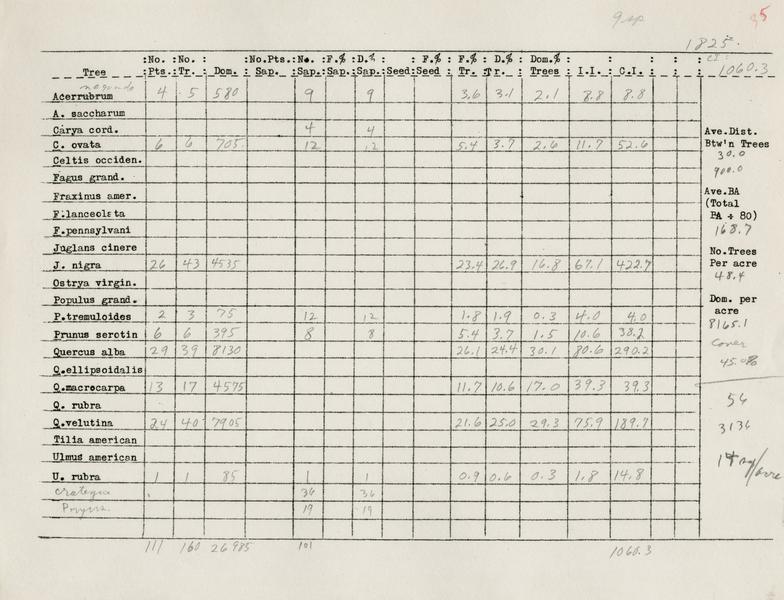 9 sp
85
1825.
:No. :No. : :No.Pts.:No. :F.% :D.% : : F.% : F.% : D.% : Dom.% : : : : : CI:
Tree :Pts.: Tr. : Dom. : Sap. :Sap.:Sap.: Sap.:Seed:Seed : Tr. :Tr. : Trees : I.I. : C.I. : : : 1060.3
negundo
Acerrubrum 4 5 580 9 9 3.6 3.1 2.1 8.8 8.8
A. saccharum
Carya cord. 4 4
C. ovata 6 6 705 12 12 5.4 3.7 2.6 11.7 52.6
Celtis occiden.
Fagus grand.
Fraxinus amer.
F.lanceolata
F.pennsylvani
Juglans cinere
J. nigra 26 43 4535 23.4 26.9 16.8 67.1 422.7
Ostrya virgin.
Populus grand.
P.tremuloides 2 3 75 12 12 1.8 1.9 0.3 4.0 4.0
Prunus serotin 6 6 395 8 8 5.4 3.7 1.5 10.6 38.2
Quercus alba 29 39 8130 26.1 24.4 30.1 80.6 290.2
Q.ellipsoidalis
Q.macrocarpa 13 17 4575 11.7 10.6 17.0 39.3 39.3
Q. rubra
Q.velutina 24 40 7905 21.6 25.0 29.3 75.9 189.7
Tilia american
Ulmus american
U. rubra 1 1 85 1 1 0.9 0.6 0.3 1.8 14.8
crategus 36 36
19 19
111 160 26985 101 1060.3
Ave.Dist.
Btw'n Trees
30.0
900.0
Ave.BA
(Total
BA ÷ 80)
168.7
No.Trees
Per acre
48.4
Dom. per
acre
8165.1
cover
45.0%
56
3136
/acre